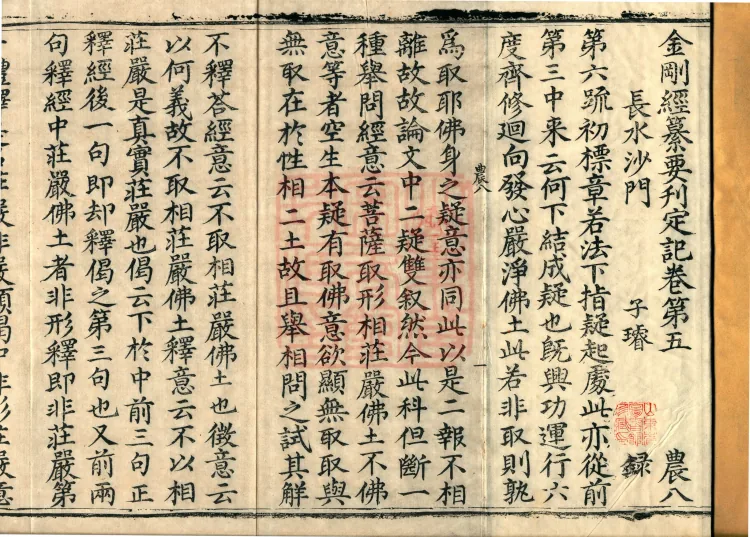 金剛經纂要刊定記卷第五 農八
長水沙門 子璿 録
第六䟽初標章若法下指疑起處此亦從前
第三中来云何下結成疑也旣興功運行六
度齊修迴向發心嚴淨佛土此若非取則孰
農八
一
爲取耶佛身之疑意亦同此以是二報不相
離故故論文中二疑雙叙然今此科但斷一
種舉問經意云菩薩取形相莊嚴佛土不佛
意等者空生本疑有取佛意欲顯無取取與
無取在於性相二土故且舉相問之試其解
不釋荅經意云不取相莊嚴佛土也徵意云
以何義故不取相莊嚴佛土釋意云不以相
莊嚴是真實莊嚴也偈云下於中前三句正
釋經後一句即却釋偈之第三句也又前兩
句釋經中莊嚴佛土者非形釋即非莊嚴第